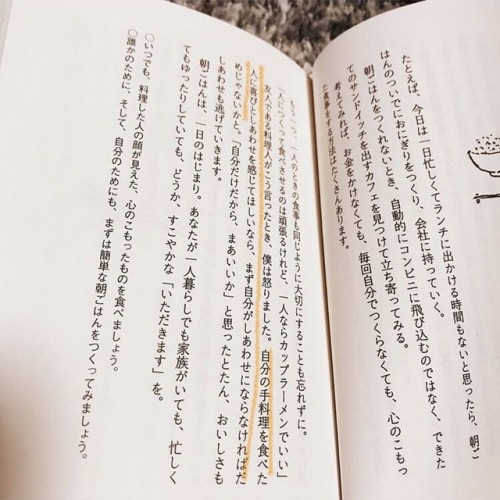 たとえば、今日は一日忙しくてランチに出かける時間もないと思ったら、朝ご
はんのついでにおにぎりをつくり、会社に持っていく。
朝ごはんをつくれないとき、自動的にコンビニに飛び込むのではなく、できた
てのサンドイッチを出すカフェを見つけて立ち寄ってみる。
考えてみれば、お金をかけなくても、毎回自分でつくらなくても、心のこもっ
た食事をする方法はたくさんあります。
もう一つ、一人のときの食事も同じように大切にすることも忘れずに。
「人につくって食べさせるのは頑張るけれど、一人ならカップラーメンでいい」
友人である料理人がこう言ったとき、僕は怒りました。自分の手料理を食べた
人に喜びとしあわせを感じてほしいなら、まず自分がしあわせにならなければだ
めじゃないかと。「自分だけだから、まあいいか」と思ったとたん、おいしさも
しあわせも逃げていきます。
朝ごはんは、一日のはじまり。あなたが一人暮らしでも家族がいても、忙しく
てもゆったりしていても、どうか、すこやかな「いただきます」を。
○いつでも、料理した人の顔が見えた、心のこもったものを食べましょう。
○誰かのために、そして、自分のためにも、まずは簡単な朝ごはんをつくってみましょう。